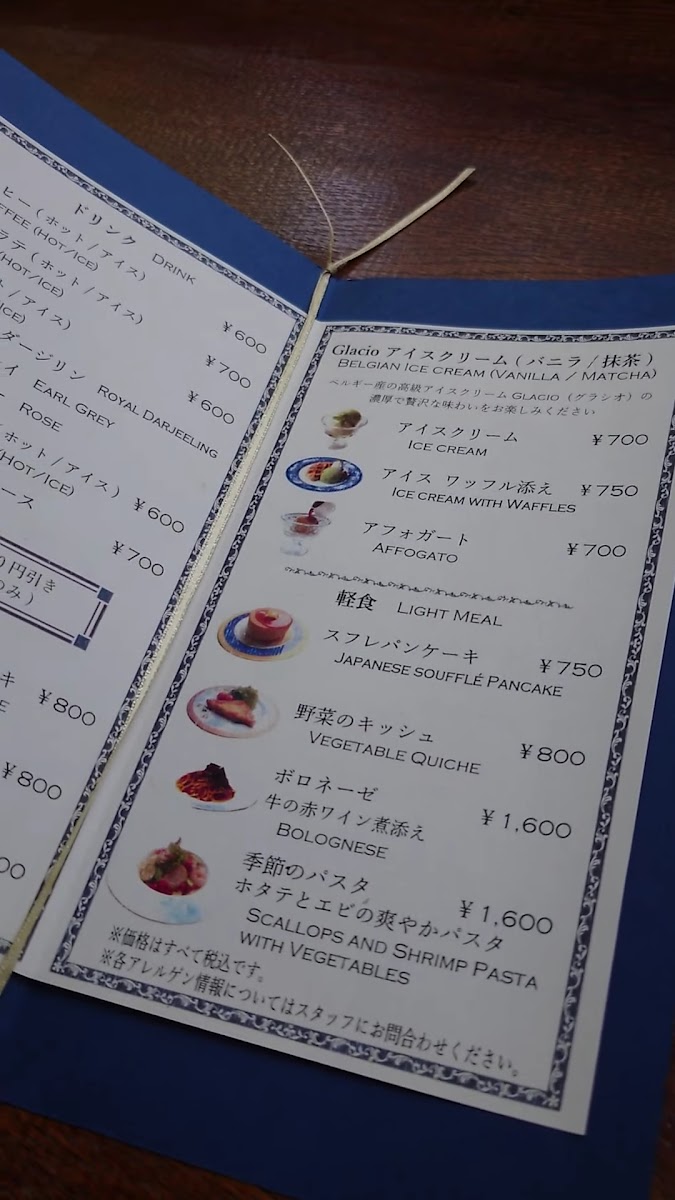 ドリンク DRINK
ヒー ( ホット / アイス )
FFEE (HOT/ICE)
¥600
ラテ ( ホット / アイス )
(HOT/ICE)
¥700
ト / アイス )
ICE)
¥600
ダージリン ROYAL DARJEELING
イ EARL GREY
ROSE
ホット / アイス )
(HOT/ICE)
¥600
ース
¥700
0 円引き
のみ )
キ ¥800
E
¥800
00
Glacio アイスクリーム ( バニラ / 抹茶 )
BELGIAN ICE CREAM (VANILLA / MATCHA)
ベルギー産の高級アイスクリーム GLACIO（グラシオ）の
濃厚で贅沢な味わいをお楽しみください
アイスクリーム ¥700
ICE CREAM
アイス ワッフル添え ¥750
ICE CREAM WITH WAFFLES
アフォガート ¥700
AFFOGATO
軽食 LIGHT MEAL
スフレパンケーキ ¥750
JAPANESE SOUFFLÉ PANCAKE
野菜のキッシュ ¥800
VEGETABLE QUICHE
ボロネーゼ
牛の赤ワイン煮添え ¥1,600
BOLOGNESE
季節のパスタ
ホタテとエビの爽やかパスタ ¥1,600
SCALLOPS AND SHRIMP PASTA
WITH VEGETABLES
※価格はすべて税込です。
※各アレルゲン情報についてはスタッフにお問合わせください。